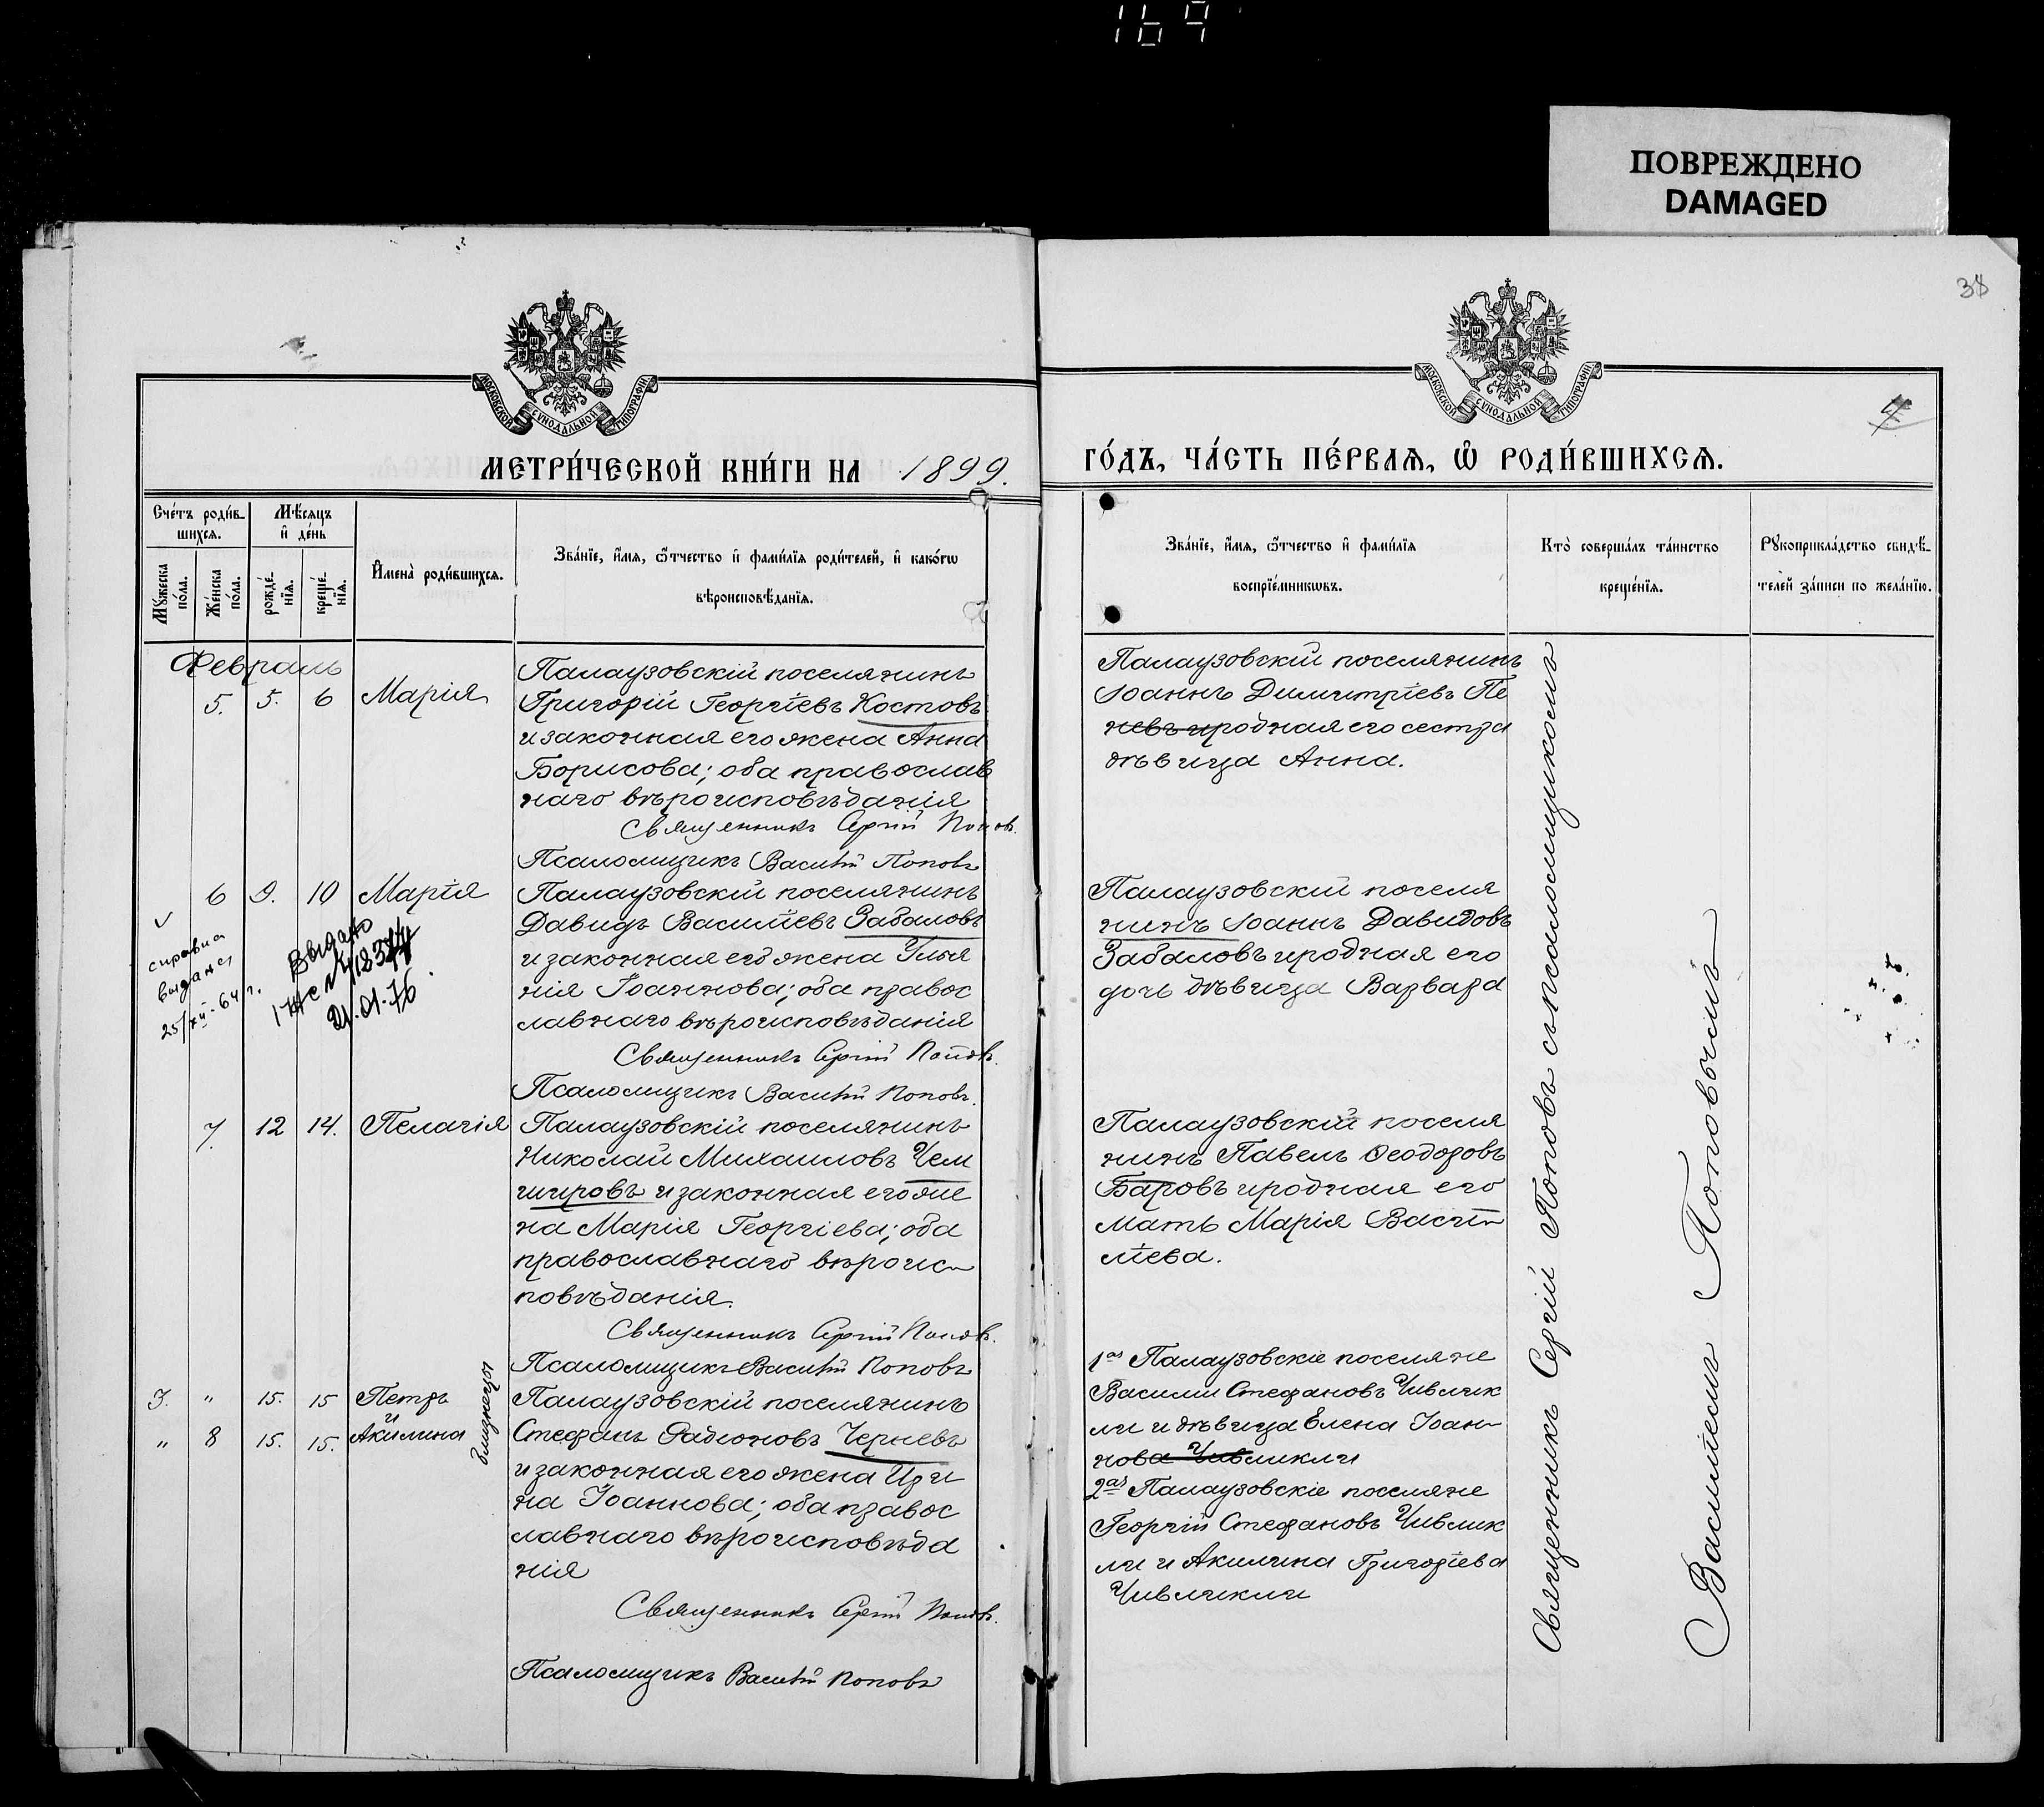 169
ПОВРЕЖДЕНО
DAMAGED
38
4
МОСКОВСКОЙ СѴНОДАЛЬНОЙ ТИПОГРАФІИ
МОСКОВСКОЙ СѴНОДАЛЬНОЙ ТИПОГРАФІИ
МЕТРИ́ЧЕСКОЙ КНИ́ГИ НА 1899.
ГО́ДЪ, ЧА́СТЬ ПЕ́РВАѦ, Ѡ РОДИ́ВШИХСѦ.
Сче́тъ роди́в-
шихсѧ.
Мꙋ́жеска по́ла.
Же́нска по́ла.
Мѣ́сѧцъ
и҆ де́нь
рожде́-
нїѧ.
креще́-
нїѧ.
И҆мена̀ роди́вшихсѧ.
Зва́нїе, и҆́мѧ, ѻ҆́тчество и҆ фами́лїѧ роди́телей, и҆ како́гѡ
вѣроисповѣ́данїѧ.
Зва́нїе, и҆́мѧ, ѻ҆́тчество и҆ фами́лїѧ
воспрїе́мникѡвъ.
Кто̀ соверша́лъ та́инство
креще́нїѧ.
Рꙋкоприкла́дство свидѣ́-
телей за́писи по жела́нїю.
Февраль
5. 5. 6 Марія
Палаузовскій поселянинъ
Григорій Георгіевъ Костовъ
и законная его жена Анна
Борисова; оба православ
наго вѣроисповѣданія
Священникъ Сергій Поповъ.
Псаломщикъ Василій Поповъ
Палаузовскій поселянинъ
Іоаннъ Димитріевъ Пе
невъ и родная его сестра
дѣвица Анна.
6 9. 10 Марія
справка
выдана
25/XII-64 г.
Выдано
21.01.76.
Палаузовскій поселянинъ
Давидъ Василіевъ Забаловъ
и законная его жена Улья
нія Іоаннова; оба правос
лавнаго вѣроисповѣданія
Священникъ Сергій Поповъ.
Псаломщикъ Василій Поповъ.
Палаузовскій поселя
нинъ Іоаннъ Давидовъ
Забаловъ и родная его
дочь дѣвица Варвара
7. 12 14. Пелагія
Палаузовскій поселянинъ
Николай Михаиловъ Чем
шировъ и законная его же
на Марія Георгіева; оба
православнаго вѣроис-
повѣданія.
Священникъ Сергій Поповъ.
Псаломщикъ Василій Поповъ
Палаузовскій поселя
нинъ Павелъ Ѳеодоровъ
Баровъ и родная его
мать Марія Васи-
ліева.
3. " 15. 15 Петръ
и
" 8 15. 15. Акилина
близнецы
Палаузовскій поселянинъ
Стефанъ Радионовъ Черневъ
и законная его жена Ири
на Іоаннова; оба правос
лавнаго вѣроисповѣда
нія
Священникъ Сергій Поповъ.
Псаломщикъ Василій Поповъ
1аг Палаузовскіе поселяне
Василій Стефановъ Чивлик
ли и дѣвица Елена Іоан-
нова Чивликли
2аг Палаузовскіе поселяне
Георгій Стефановъ Чивлик
ли и Акилина Григоріева
Чивликли
Священникъ Сергій Поповъ съ псаломщикомъ
Василіемъ Поповымъ